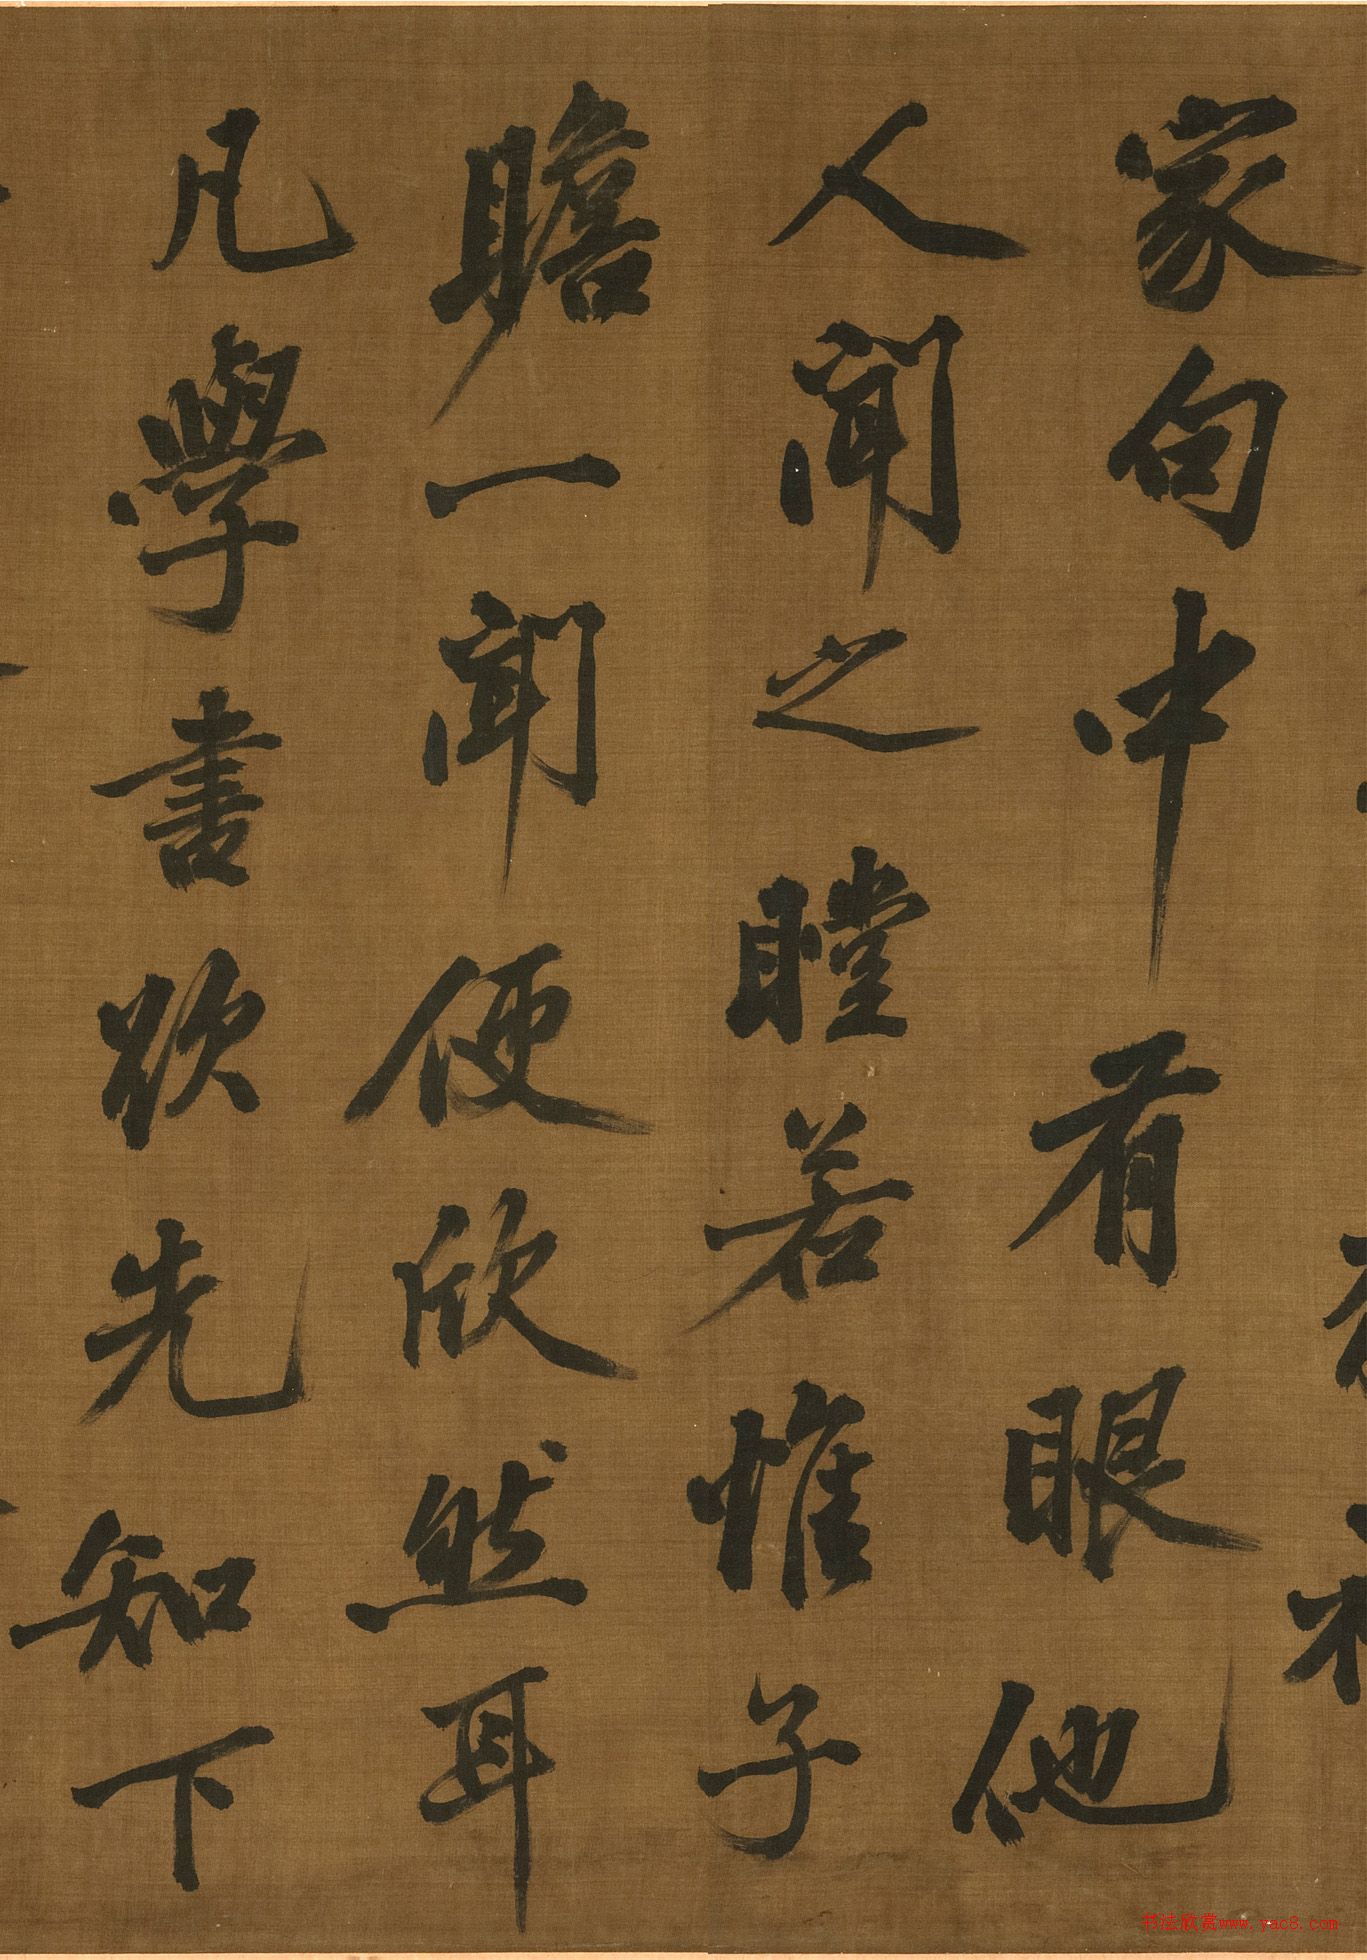 家句中有眼他
人聞之瞠若惟子
瞻一聞便欣然耳
凡學書欲先知下
书法欣赏www.yac8.com